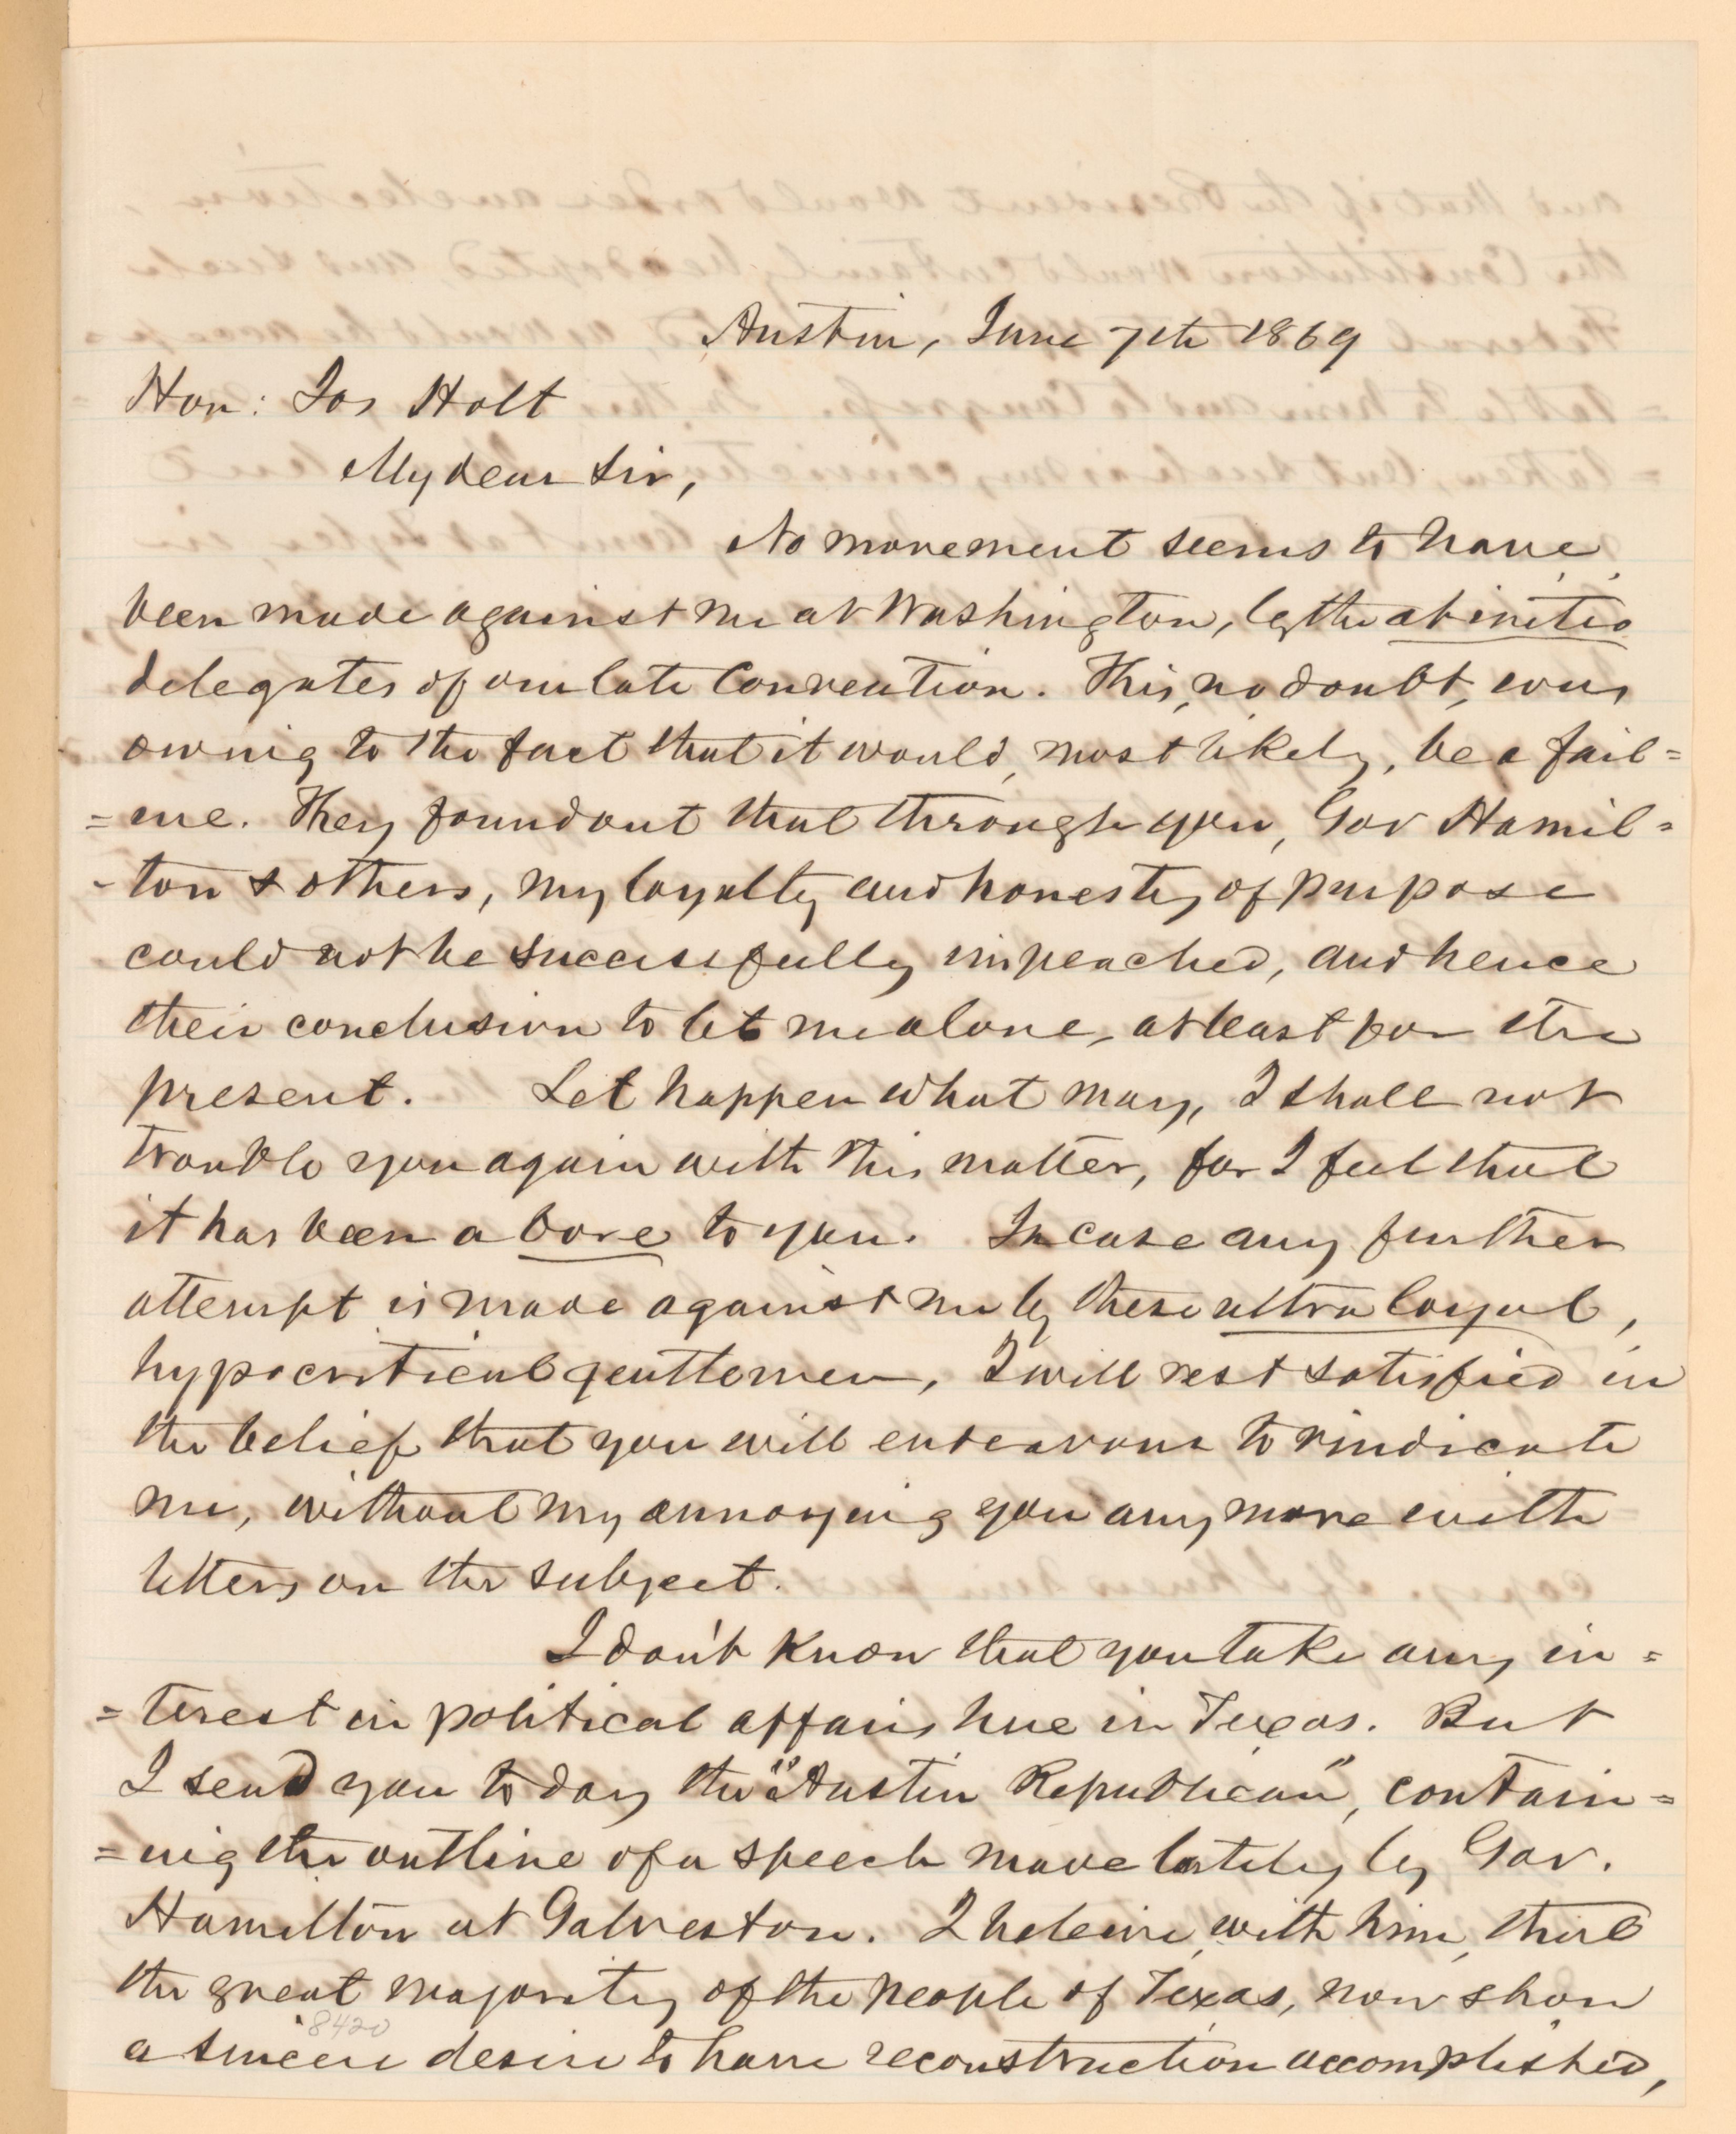 Austin, June 7th 1869
Hon: Jos Holt
My dear Sir,
No movement seems to have
been made against me at Washington, by the ab initio
delegates of our late Convention. This, no doubt, was
owing to the fact that it would, most likely, be a fail=
=ure. They found out that through you, Gov Hamil=
-ton & others, my loyalty and honesty of purpose
could not be successfully impeached, and hence
their conclusion to let me alone, at least for the
present. Let happen what may, I shall not
trouble you again with this matter, for I feel that
it has been a bore to you. In case any further
attempt is made against me by these ultra loyal,
hypocritical gentlemen, I will rest satisfied in
the belief that you will endeavour to vindicate
me, without my annoying you any more with
letters on the subject.
I don't know that you take any in=
=terest in political affairs here in Texas. But
I send you to day the "Austin Republican", contain=
=ing the outline of a speech made lately by Gov.
Hamilton at Galveston. I beleive, with him, that
the great majority of the people of Texas, now show
8420
a sincere desire to have reconstruction accomplished,